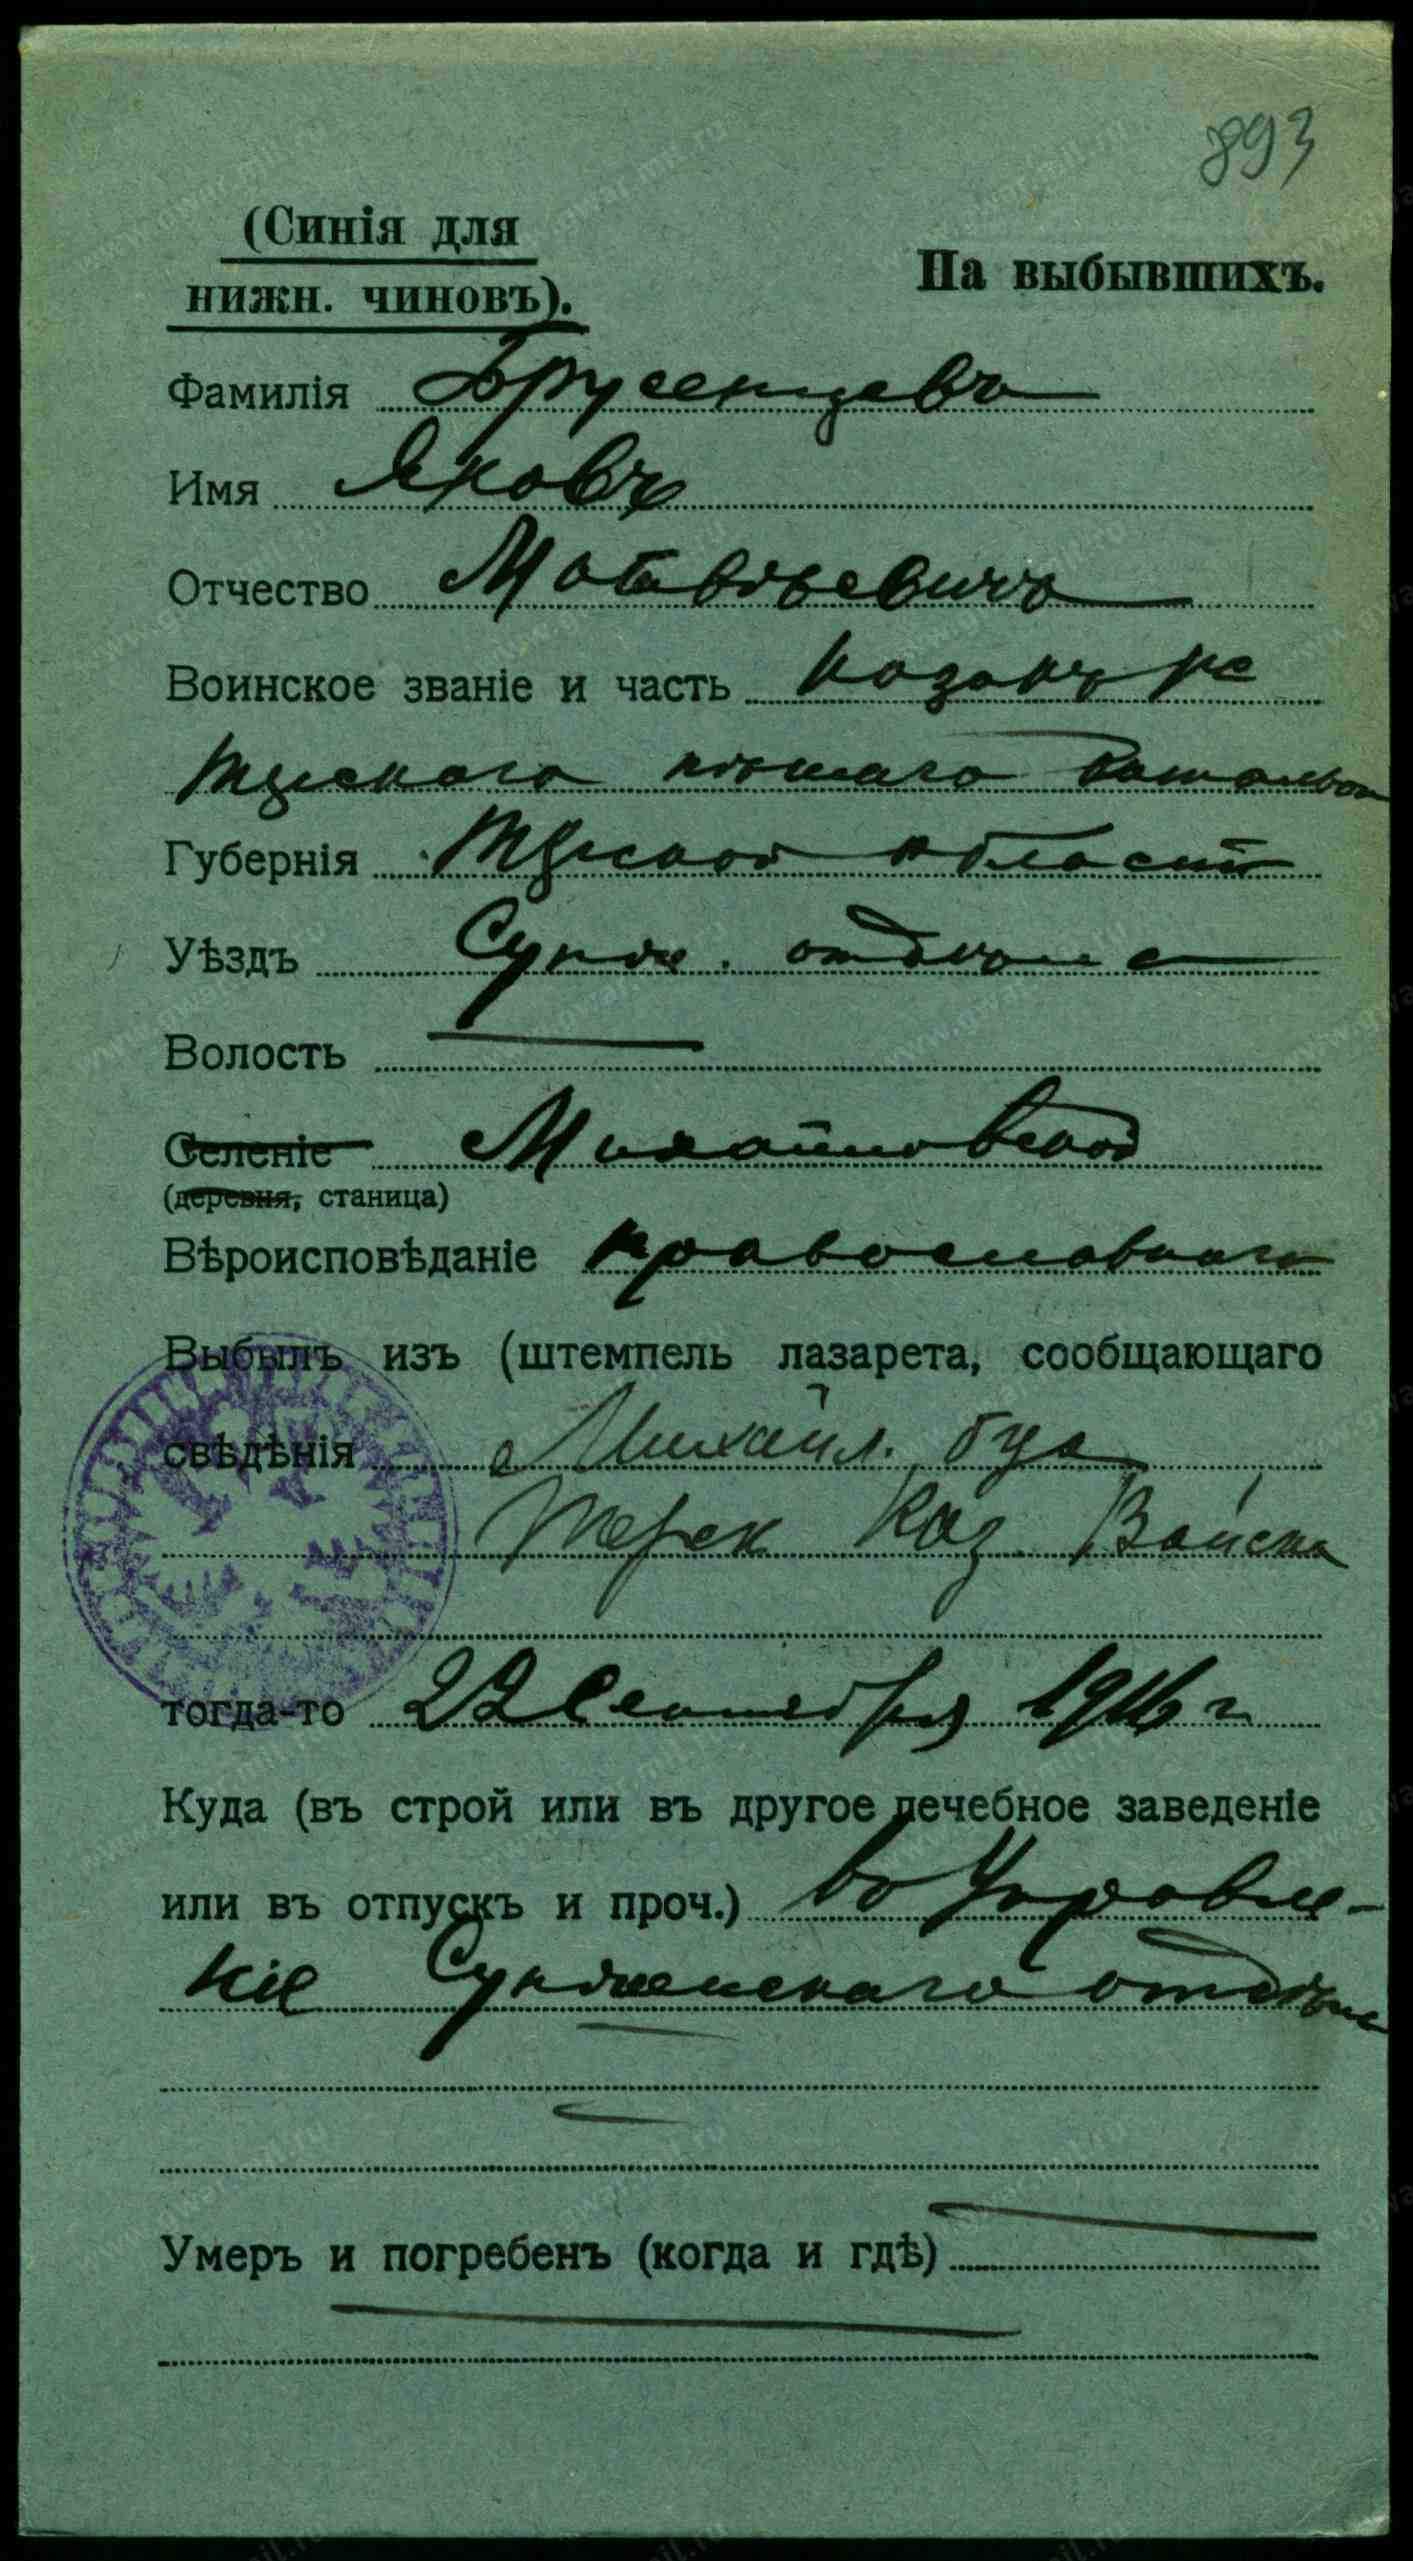 893
(Синія для
нижн. чиновъ).
На выбывшихъ.
Фамилія Брусенцевъ
Имя Яковъ
Отчество Матвѣевичъ
Воинское званіе и часть казакъ
Терскаго пѣшаго баталіона
Губернія Терской области
Уѣздъ Сунж. отдѣла
Волость
Селеніе Михайловской
(деревня, станица)
Вѣроисповѣданіе православнаго
Выбылъ изъ (штемпель лазарета, сообщающаго
свѣдѣнія Михайл.
Терск Каз Войска
тогда-то 22 Сентября 1916 г
Куда (въ строй или въ другое лечебное заведеніе
или въ отпускъ и проч.) въ Управле-
ніе Сунженскаго отдѣла
Умеръ и погребенъ (когда и гдѣ)